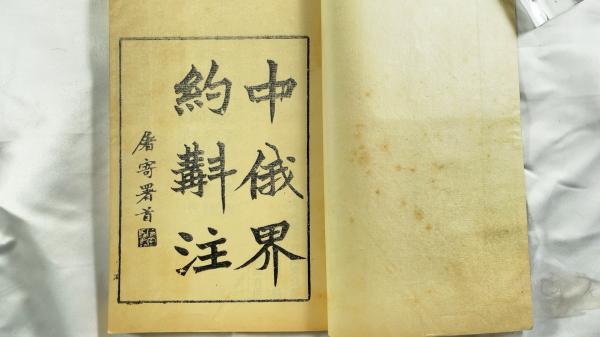 中俄界
約斠注
屠寄署首